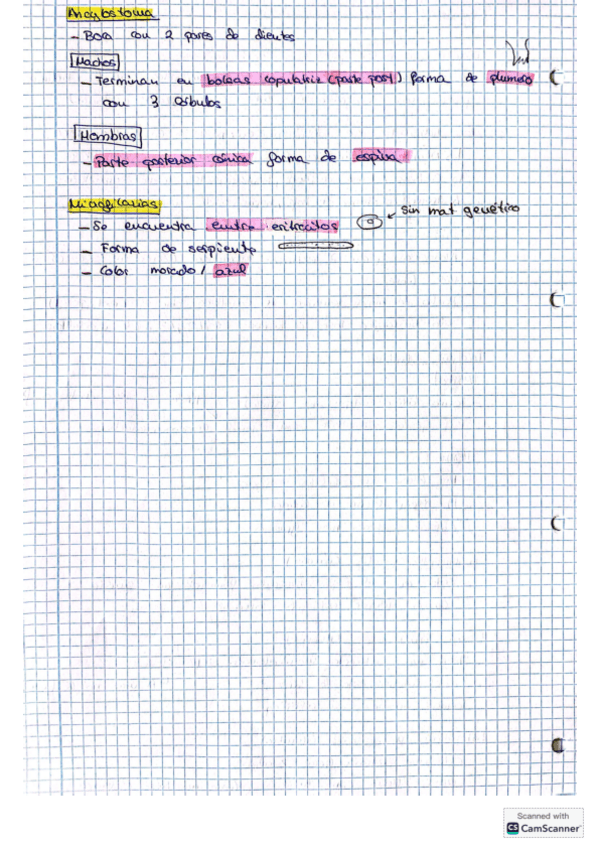 Ancylostoma
- Boca con 2 pares de dientes
Machos
- Terminan en bolsas copulatriz (parte post) forma de plumero
con 3 lóbulos
Hembras
- Parte posterior cónica forma de espina
Microfilarias
- Se encuentra entre eritrocitos
sin mat genético
- Forma de serpiente
- Color morado / azul
Scanned with
CS CamScanner